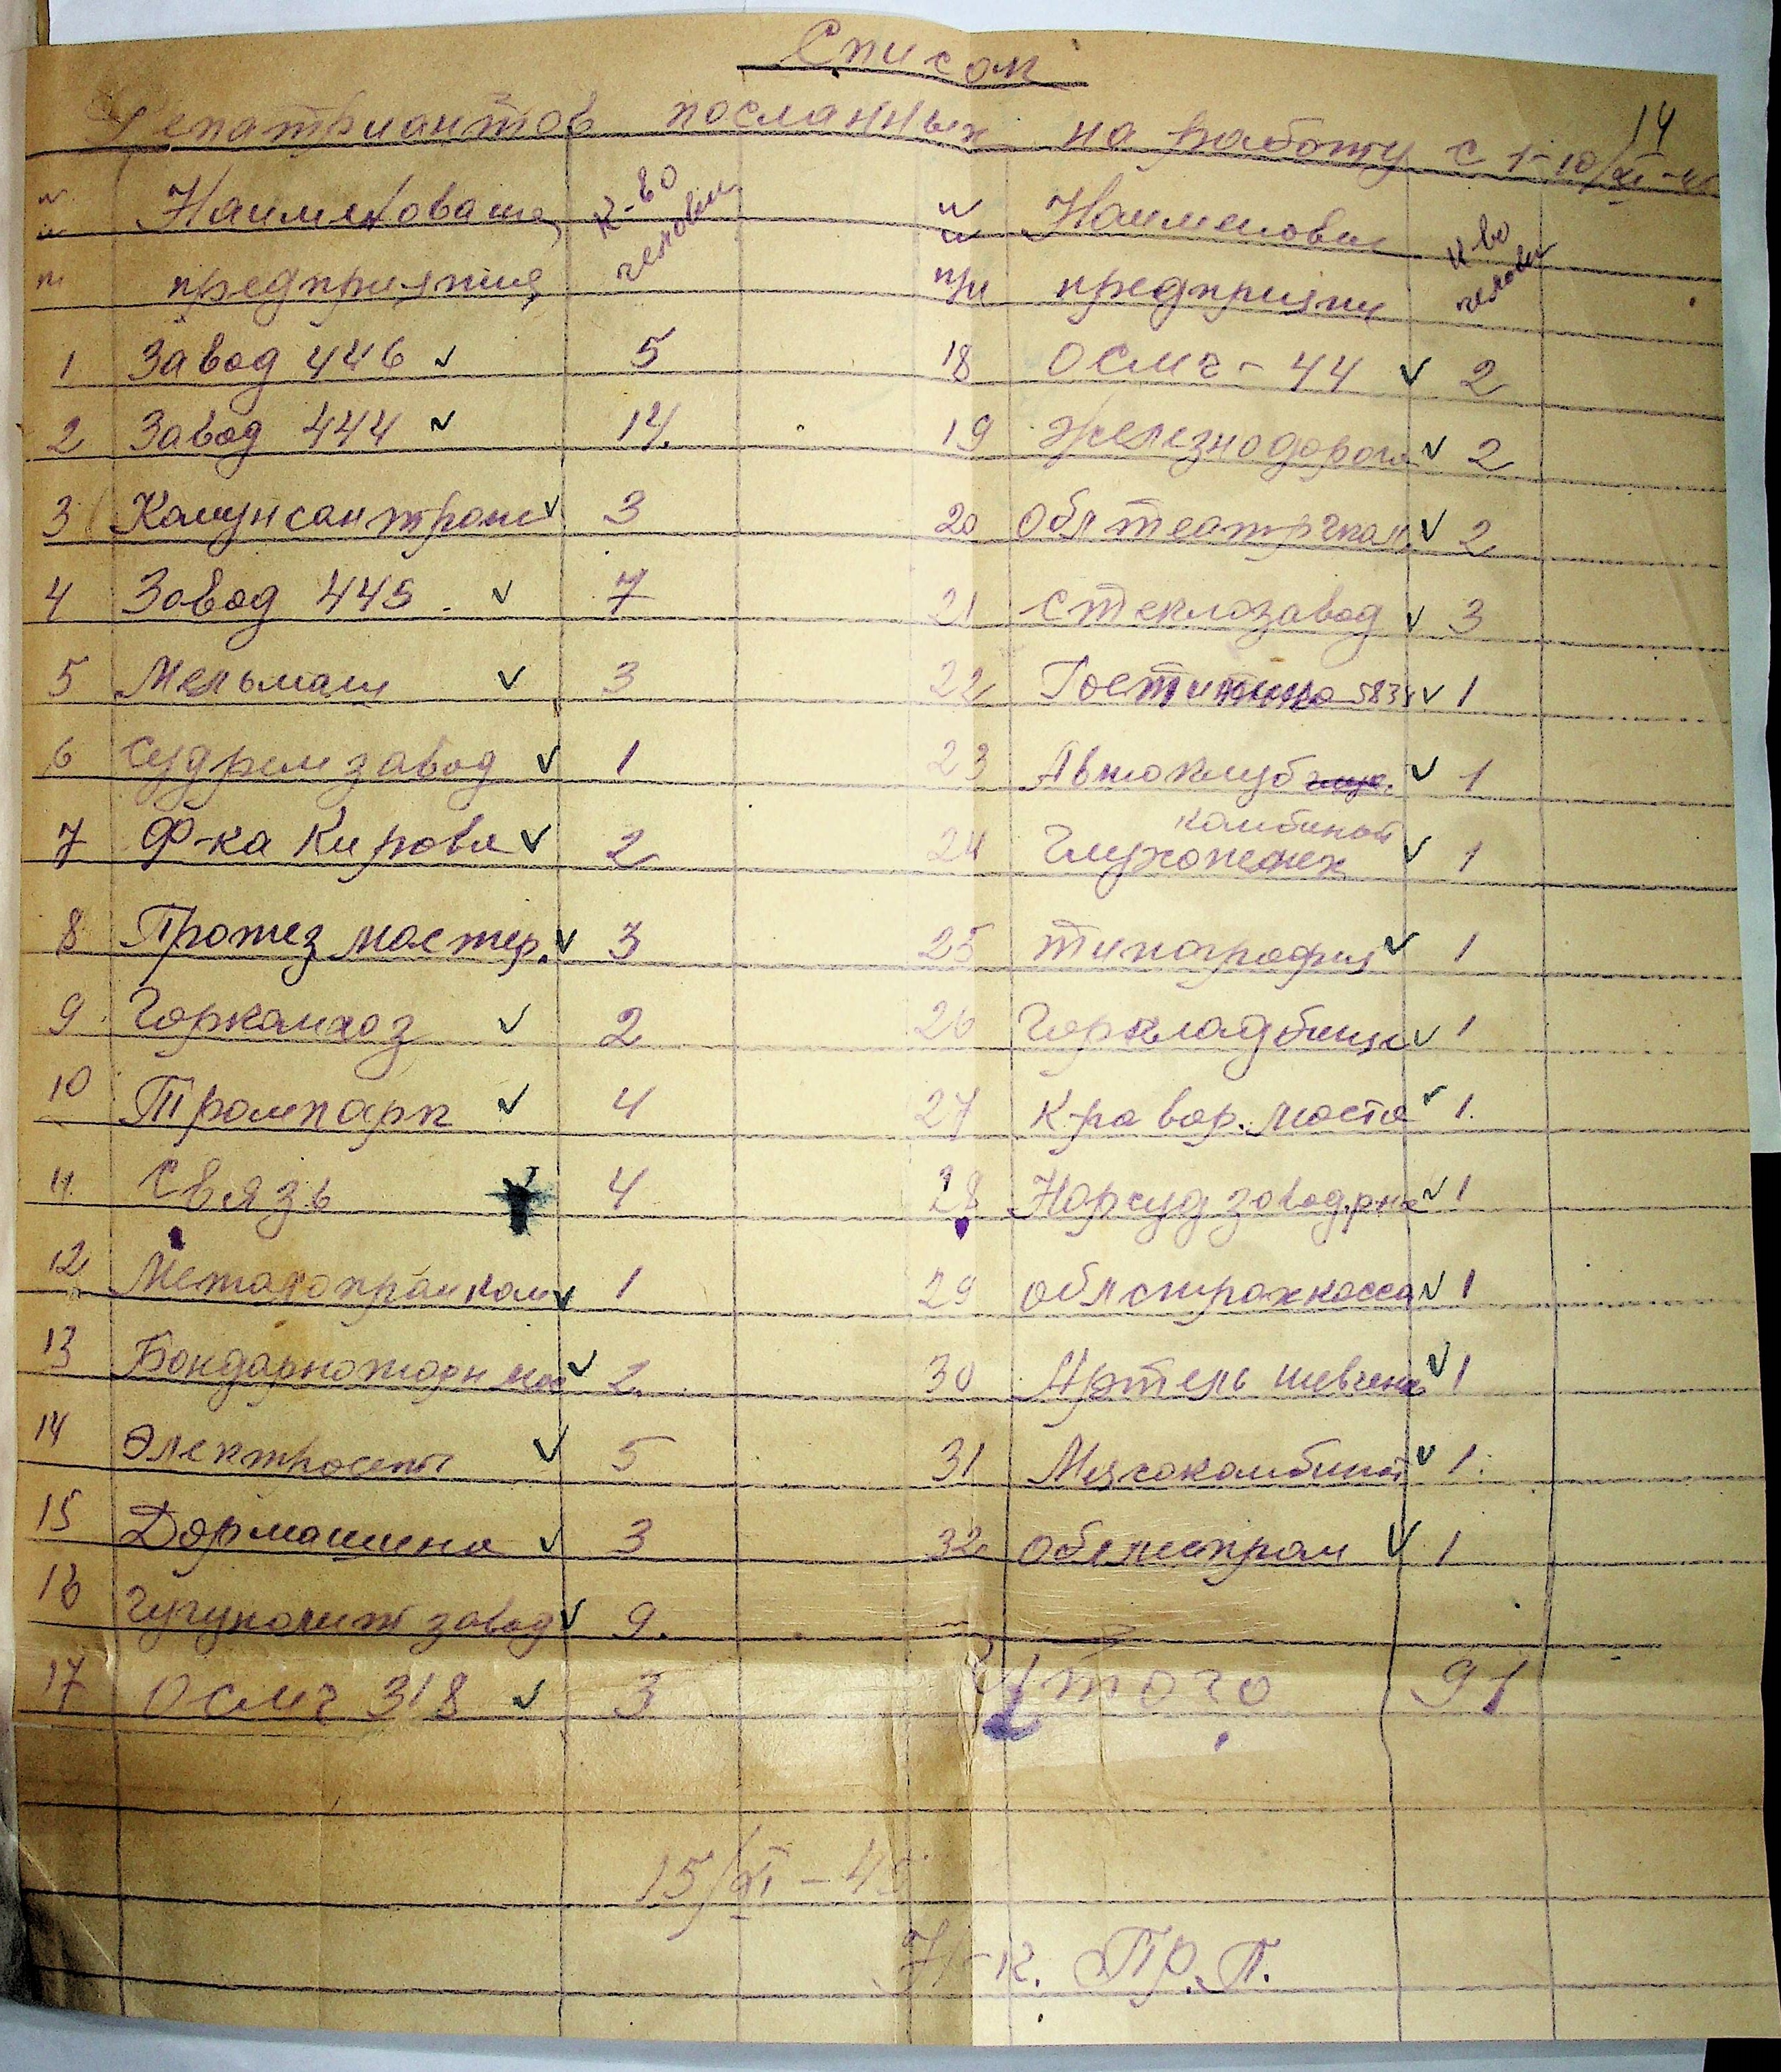 Список
14
Репатриантов посланных на работу с 1-10/XI-45
№№ Наименование к-во человек
пп предприятия
1 Завод 446 ✓ 5
2 Завод 444 ✓ 14.
3 Комунсантехн ✓ 3
4 Завод 445. ✓ 7
5 Мельмаш ✓ 3
6 Судремзавод ✓ 1
7 Ф-ка Кирова ✓ 2
8 Протез мастер. ✓ 3
9 Горкомхоз ✓ 2
10 Трампарк ✓ 4
11. Связь 4
12 Металопромком ✓ 1
13 Бондарнотарн мас ✓ 2.
14 Электросеть ✓ 5
15 Дормашина ✓ 3
16 Чугунолит завод ✓ 9.
17 ОСМЧ 318 ✓ 3
№№ Наименован к-во человек
п/п предприяти
18 ОСМЧ-44 ✓ 2
19 Железнодорога ✓ 2
20 Обл ✓ 2
21 Стеклозавод ✓ 3
22 Гостиница ✓ 1
23 Автоклуб ✓ 1
комбинат
24 Глухонемых ✓ 1
25 Типография ✓ 1
26 Горкладбище ✓ 1
27 К-ра вор. моста ✓ 1.
28 Нарсуд завод.рна ✓ 1
29 Облстрахкасса ✓ 1
30 Артель шевченк ✓ 1
31 Мясокомбинат ✓ 1.
32 Облпищпром ✓ 1
Итого 91
15/XI-45
Н-к. ПР.П.